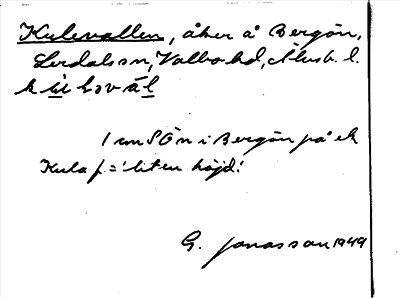 Kulevallen, åker å Bergön,
Lerdals sn, Valbo hd, Älvsb. l.
1 cm SÖ n i Bergön på ek
Kula f = 'liten höjd'
G. Jonasson 1949